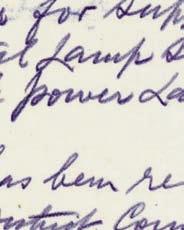 for sup
al lamp s
power La
has been re
District Com